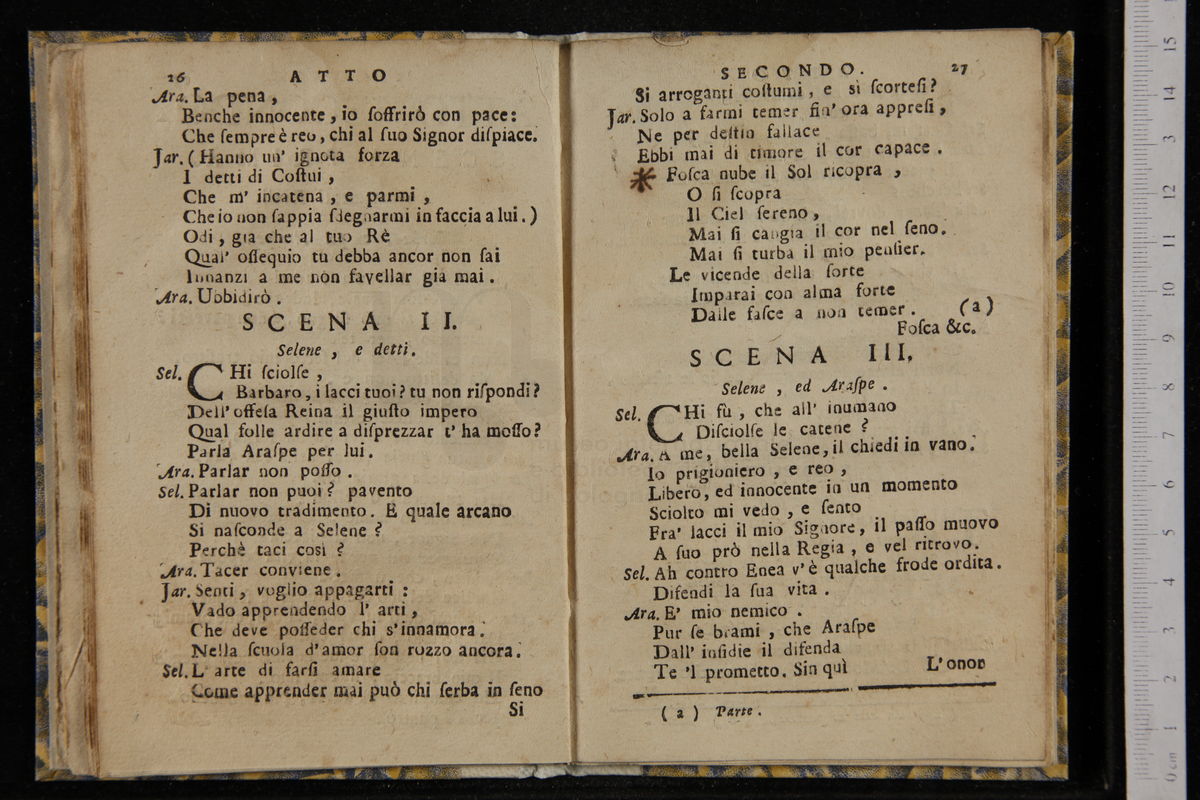 26 ATTO
Ara. La pena,
Benche innocente, io ſoffrirò con pace:
Che ſempre è reo, chi al ſuo Signor diſpiace.
Jar. (Hanno un' ignota forza
I detti di Coſtui,
Che m' incatena, e parmi,
Che io non ſappia ſdegnarmi in faccia a lui.)
Odi, gia che al tuo Rè
Qual' oſſequio tu debba ancor non ſai
Innanzi a me non favellar gia mai.
Ara. Ubbidirò.
SCENA II.
Selene, e detti.
Sel. CHi ſciolſe,
Barbaro, i lacci tuoi? tu non riſpondi?
Dell' offeſa Reina il giuſto impero
Qual folle ardire a diſprezzar t' ha moſſo?
Parla Araſpe per lui.
Ara. Parlar non poſſo.
Sel. Parlar non puoi? pavento
Di nuovo tradimento. E quale arcano
Si naſconde a Selene?
Perchè taci così?
Ara. Tacer conviene.
Jar. Senti, voglio appagarti:
Vado apprendendo l' arti,
Che deve poſſeder chi s'innamora.
Nella ſcuola d'amor ſon rozzo ancora.
Sel. L' arte di farſi amare
Come apprender mai può chi ſerba in ſeno
Si
SECONDO. 27
Si arroganti coſtumi, e sì ſcorteſi?
Jar. Solo a farmi temer fin' ora appreſi,
Ne per deſtin fallace
Ebbi mai di timore il cor capace.
Foſca nube il Sol ricopra,
O ſi ſcopra
Il Ciel ſereno,
Mai ſi cangia il cor nel ſeno.
Mai ſi turba il mio penſier.
Le vicende della ſorte
Imparai con alma forte
Dalle faſce a non temer. (a)
Foſca &c.
SCENA III.
Selene, ed Araſpe.
Sel. CHi fù, che all' inumano
Diſciolſe le catene?
Ara. A me, bella Selene, il chiedi in vano.
Io prigioniero, e reo,
Libero, ed innocente in un momento
Sciolto mi vedo, e ſento
Fra' lacci il mio Signore, il paſſo muovo
A ſuo prò nella Regia, e vel ritrovo.
Sel. Ah contro Enea v' è qualche frode ordita.
Difendi la ſua vita.
Ara. E' mio nemico.
Pur ſe brami, che Araſpe
Dall' inſidie il difenda
Te 'l prometto. Sin quì
L'onor
(a) Parte.